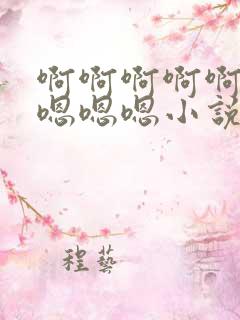 啊啊啊啊啊
嗯嗯嗯小説
程藝